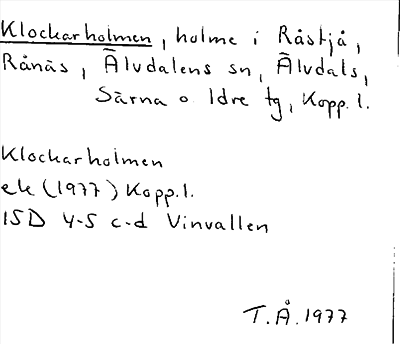 Klockarholmen, holme i Råstjå,
Rånäs, Älvdalens sn, Älvdals,
Särna o Idre tg, Kopp. l.
Klockarholmen
ek (1977) Kopp. l.
15D 4-5 c-d Vinvallen
T.Å. 1977